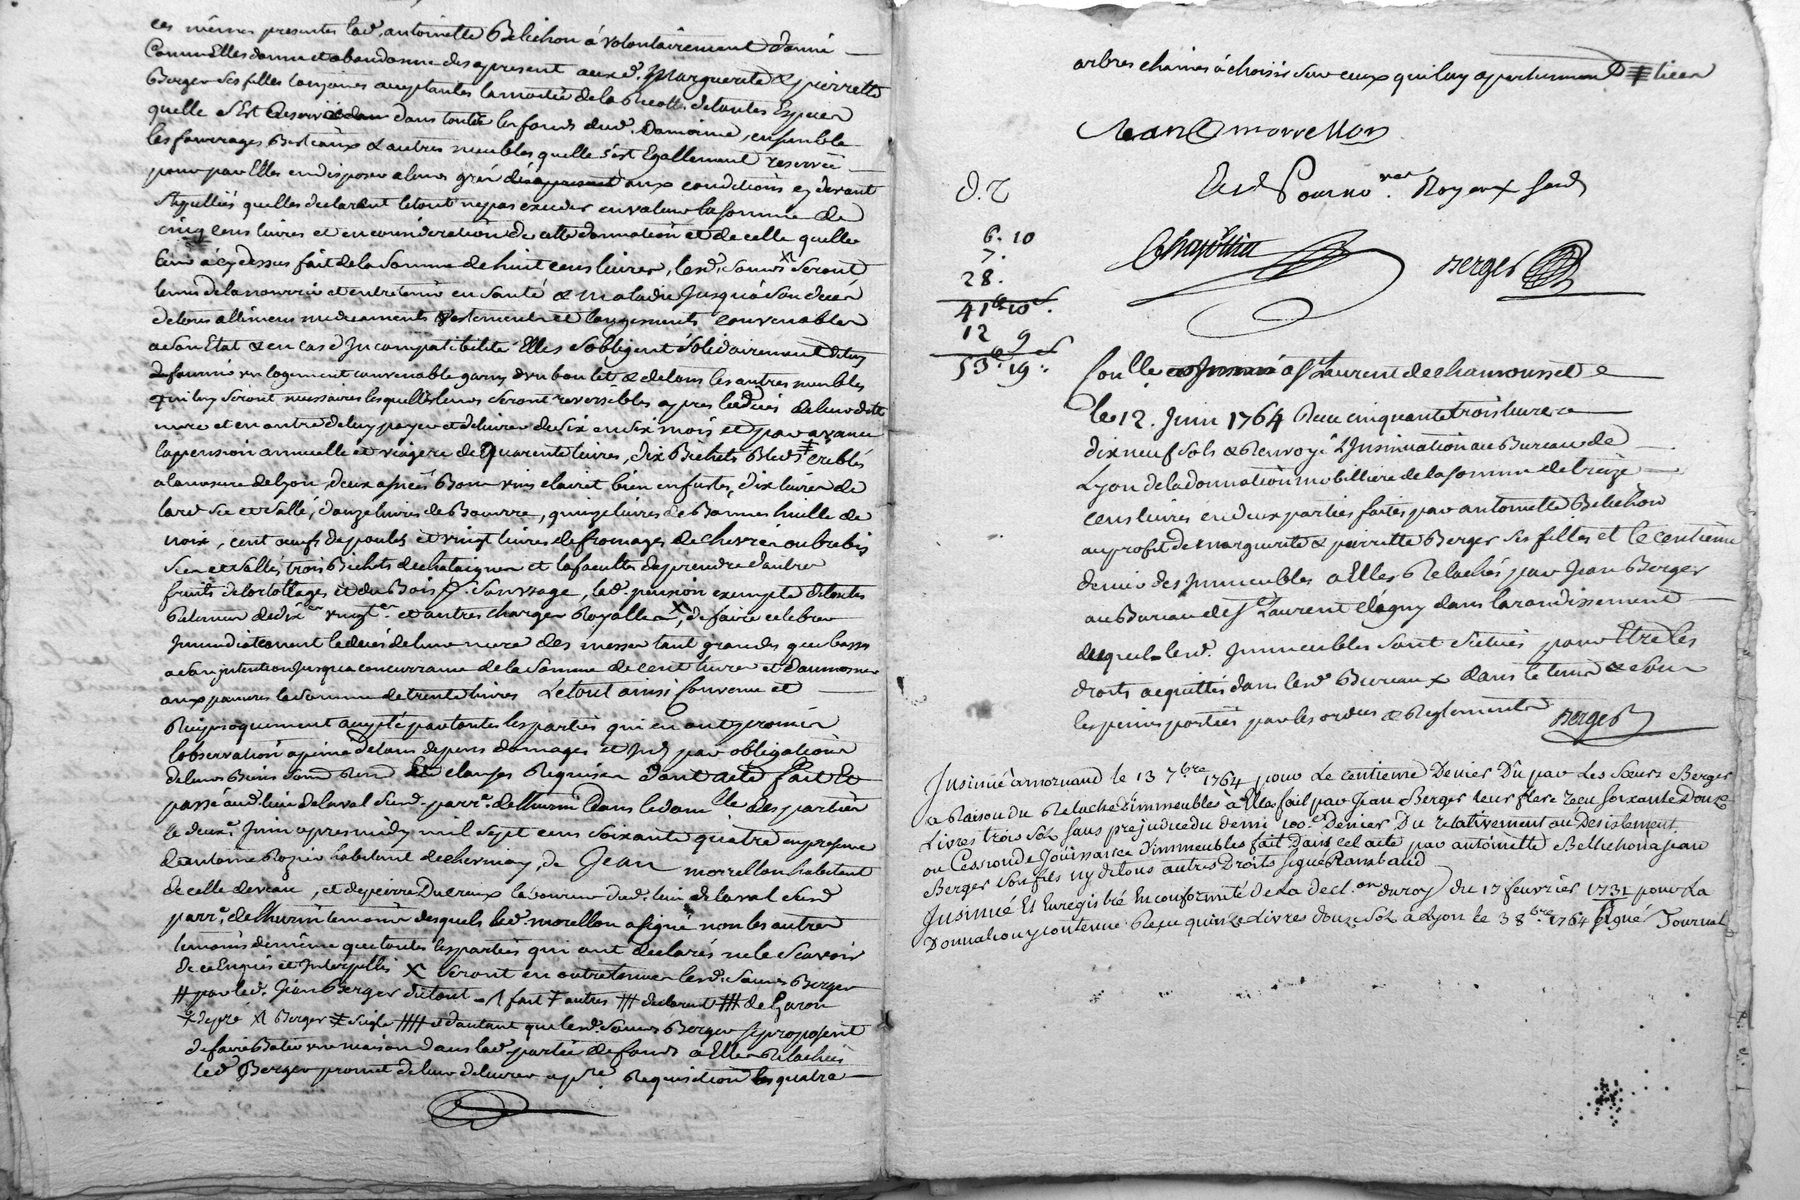 ces mêmes presentes lad. antoinette Belichon á volontairement donné
Comme Elles donne et abandonne des apresent aux d. Marguerite & pierrette
Berger ses filles
quelle s'Est Reservée dans toutte les fonds dud. Domaine, ensemble
les fourrages Bestiaux & autres meubles quelle s'est Egallement reservée
pour par Elles en disposer a leurs gré aux conditions cy devant
Stipullés quelles declarent le tout ne pas exceder en valeur la somme de
cinq cens livres et en consideration de cette donnation et de celle quelle
leur á cy dessus fait de la somme de huit cens livres, lesd. soeurs seront
tenus de la nourrir et entretenir en santé & maladie Jusqu'á son decès
de tous allimens medicaments vestements et logements convenables
a son Etat & en cas d'Incompatibilité Elles s'obligent solidairement de luy
fournir un logement convenable garny d'un bon lit & de tous les autres meubles
qui luy seront necessaires lesquelles leurs seront reversibles apres le decés de leurditte
mere et en outre de luy payer et delivrer de six en six mois et par avance
la pension annuelle et viagere de quarente livres, dix Bichets Bled criblés
a la mesure de Lyon, deux asnées Bon vin clairet bien enfustés, dix livres de
lard sec et sallé, douze livres de Beurre, quinze livres de Bonnes huille de
noix, cent oeufs de poules et vingt livres de fromages de chevre ou brebis
secs et sallés, trois Bichets de chataignes et la faculté de prendre d'autres
fruits de ortollages et du Bois p. son usage, lad. pension exempte de toutes
Retenues de dix. vingt. et autres charges Royalles, de faire celebrer
Immediatement le decés de leur mere des messes tant grandes que basses
a son intention Jusqu'a concurrance de la somme de cent livres et d'aumosner
aux pauvres la somme de trente livres Le tout ainsi Convenu et
Reciproquement accepté par toutes les parties qui en ont promis
l'observation a peine de tous depens domages et Int. par obligation
de leurs Biens Soum. Ren. & clauses Requises Dont acte fait et
passé aud. lieu de Laval sur d. parr. de Thurin dans le dom.lle des parties
le deux. Juin apres midy mil sept cens soixante quatre en presence
de antoine Rozier habitant de chermay, de Jean morrellon habitant
de celle de , et de pierre Ducreux laboureur dud. lieu de laval sur d.
parr. de thurin temoins desquels led. morellon a signé non les autres
temoins de même que toutes les parties qui ont declarés ne le scavoir
de ce Enquis et Interpellés X seront en outre tenues lesd. soeurs Berger
# par led. Jean Berger du tout fait 7 autres declarent de Garon
depré Berger seigle et d'autant que lesd. soeurs Berger se proposent
de faire Batir une maison dans lad. partie de fonds a Elles Relachés
led. Berger promet de leur delivrer a p.re Requisition les quatre
arbres chaines á choisir sur ceux qui luy apartiennent
Jean morrellon
Royaux
d. T
6. 10
7.
28.
41lt 10s.
12 9
53lt 19s.
Berger
Con.lle a St Laurent de chamousset
le 12. Juin 1764 Recu cinquante trois livres
dix neuf sols & Renvoyé l'Insinuation au Bureau de
Lyon de la donnation mobilliere de la somme de treize
cens livres en deux parties faites par antoinette Belichon
au profit de marguerite & pierrette Berger ses filles et le centieme
denier des Immeubles a Elles Relachés par Jean Berger
au Bureau de St Laurent dagny dans larondissement
duquel lesd. Immeubles sont situés pour Etre Les
droits acquittés dans lesd. Bureaux dans le tems & sous
les peines portées par les ordres & Reglements Berger
Insinué à mornand le 13 7bre 1764 pour Le centieme Denier Dû par Les Sœurs Berger
a Raison du Relaché d'immeubles a Elles fait par Jean Berger leur frere recu soixante Douze
Livres trois Sols sans prejudice du demi 100.e Denier Du relativement au Desistement
ou Cession de Joüissance d'immeubles fait Dans cet acte par antoinette Bellichon a Jean
Berger son fils ny de tous autres Droits signé Rambaud
Insinué Et Enregistré En conformité De La decl.on du roy du 17 feuvrier 1731 pour La
Donnation y contenue Reçu quinze Livres douze Sols a Lyon le 3 8bre 1764 signé Tournal